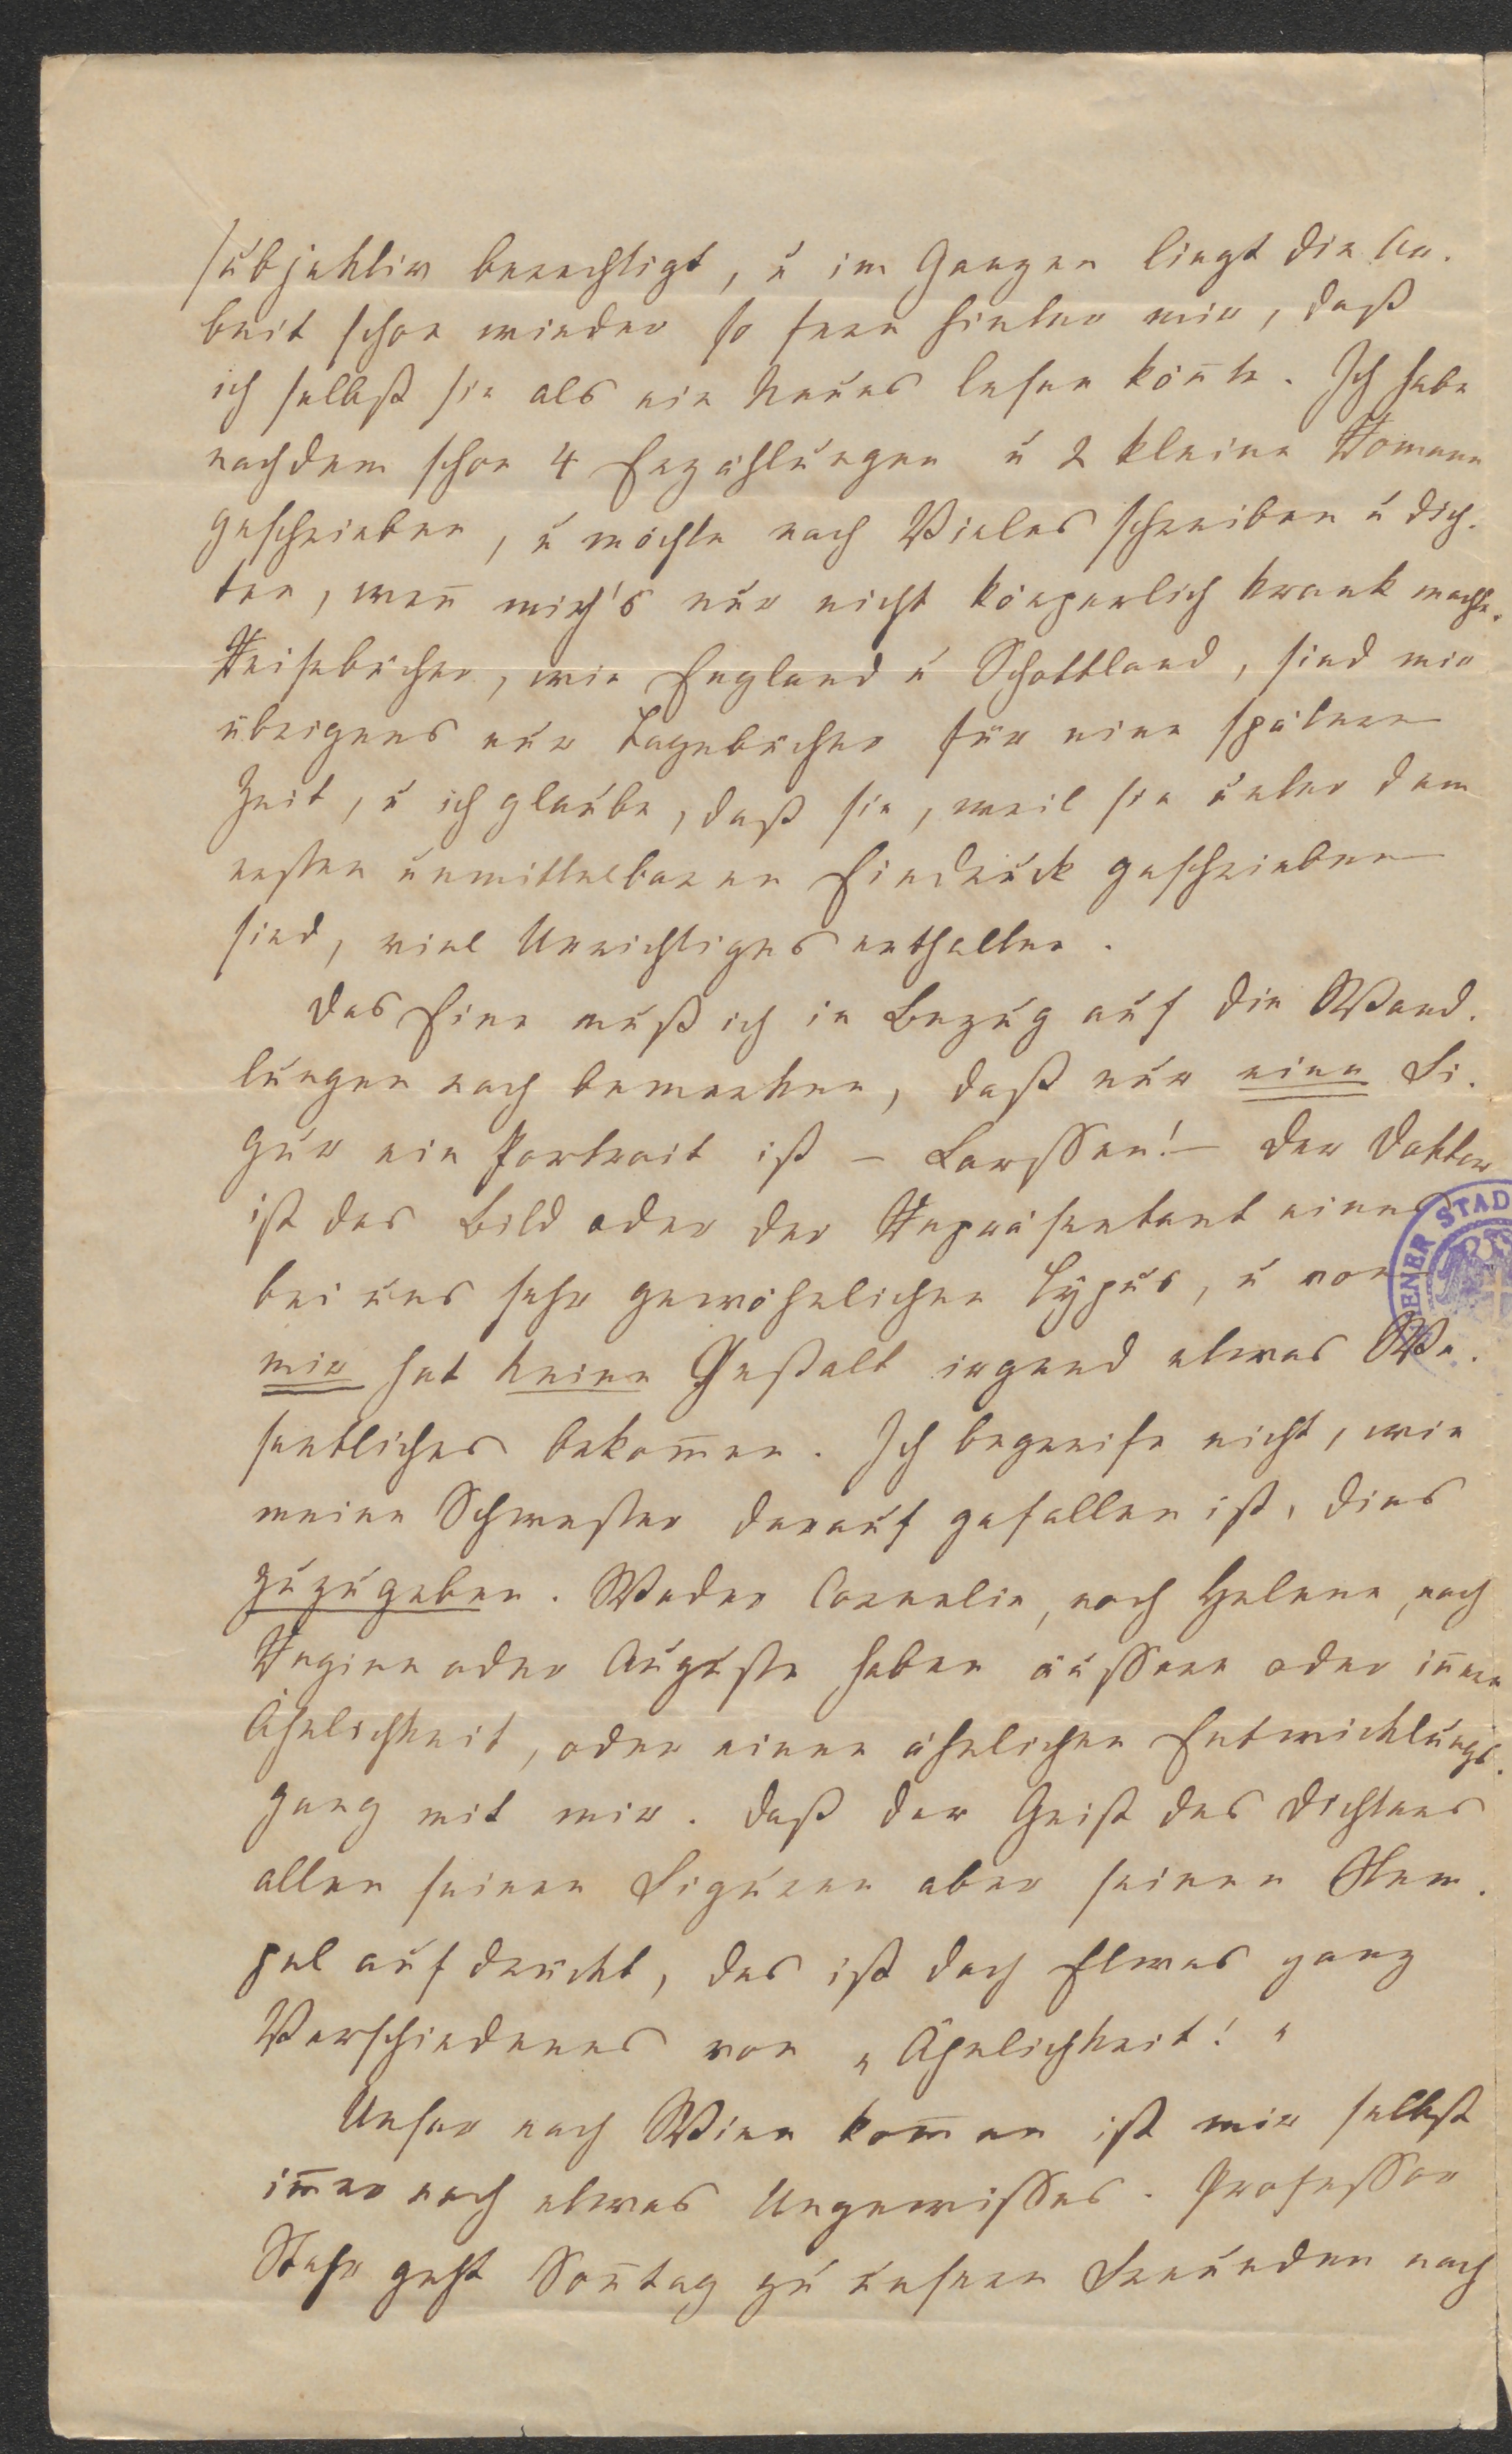 subjektiv berechtigt, u im Ganzen liegt die Ar-
beit schon wieder so fern hinter mir, daß
ich selbst sie als ein Neues lesen kön̄te. Ich habe
nachdem schon 4 Erzählungen u 2 kleine Romane
geschrieben, u möchte noch Vieles schreiben u dich-
ten, wen̄ mich's nur nicht körperlich krank machte.
Reisebücher, wie England u Schottland, sind mir
übrigens nur Tagebücher für eine spätere
Zeit, u ich glaube, daß sie, weil sie unter dem
ersten unmittelbaren Eindruck geschrieben
sind, viel Unrichtiges enthalten.
Das Eine muß ich in Bezug auf die Wand-
lungen noch bemerken, daß nur eine Fi-
gur ein Portrait ist – Larssen! – Der Doktor
ist das Bild oder der Repräsentant eines
bei uns sehr gewöhnlichen Typus, u von
mir hat keine Gestalt irgend etwas We-
sentliches bekom̄en. Ich begreife nicht, wie
meine Schwester darauf gefallen ist, dies
zuzugeben. Weder Cornelie, noch Helene, noch
Regine oder Auguste haben äussere oder in̄ere
Ähnlichkeit, oder einen ähnlichen Entwicklungs-
gang mit mir. Daß der Geist des Dichters
allen seinen Figuren aber seinen Stem-
pel aufdrückt, das ist doch Etwas ganz
Verschiedenes von „Ähnlichkeit!"
Unser nach Wien kom̄en ist mir selbst
im̄er noch etwas Ungewisses. Professor
Stahr geht Son̄tag zu unsern Freunden nach
IENER STAD